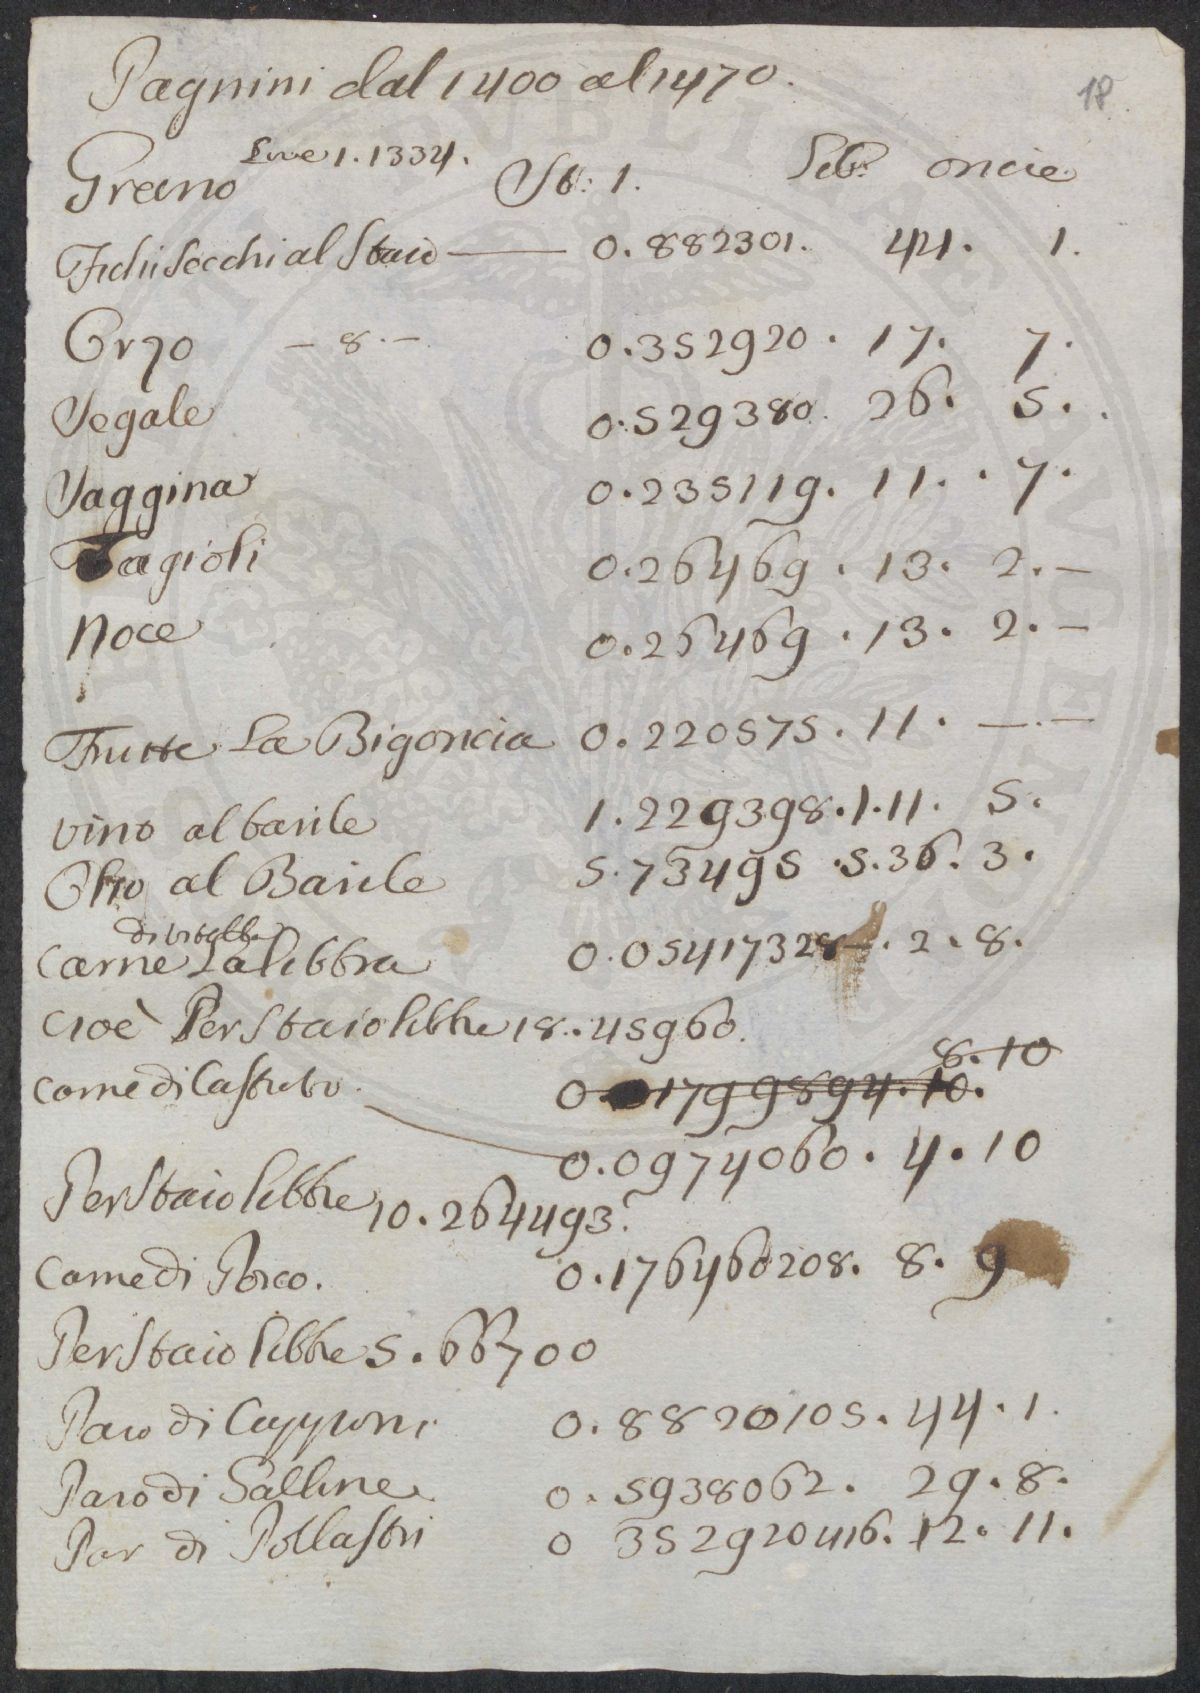 Pagnini dal 1400 al 1470.
18
Lire 1.1334.
Grano St: 1. Lib: oncie
Fichi secchi al Staio — 0.882301. 44. 1.
Orzo — 8. — 0.352920. 17. 7.
Segale 0.529380. 26. 5.
Saggina 0.235119. 11. 7.
Fagioli 0.26469. 13. 2. —
Noce 0.26469. 13. 2. —
Frutte La Bigoncia 0.220575. 11. — . —
vino al barile 1.229398. 1. 11. 5.
Olio al Barile 5.73495. 5. 36. 3.
di vitella
Carne La libbra 0.05417328 — . 2. 8.
cioè Per Staio libbre 18.45960.
8.10
carne di Castrato. 0.017999894.10.
0.0974060. 4. 10
Per Staio libbre 10.264493.
Carne di Porco. 0.176460208. 8. 9
Per Staio libbre 5.66700
Paro di Capponi 0.8820105. 44. 1.
Paro di Galline 0.5938062. 29. 8.
Par di Pollastri 0 352920416. 12. 11.